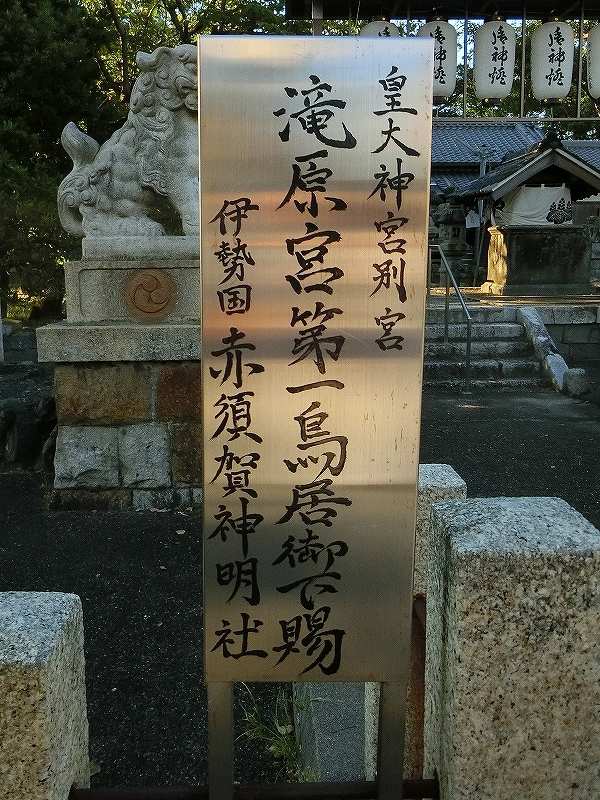 皇大神宮別宮
滝原宮第一鳥居御下賜
伊勢国赤須賀神明社
御神燈
御神燈
御神燈